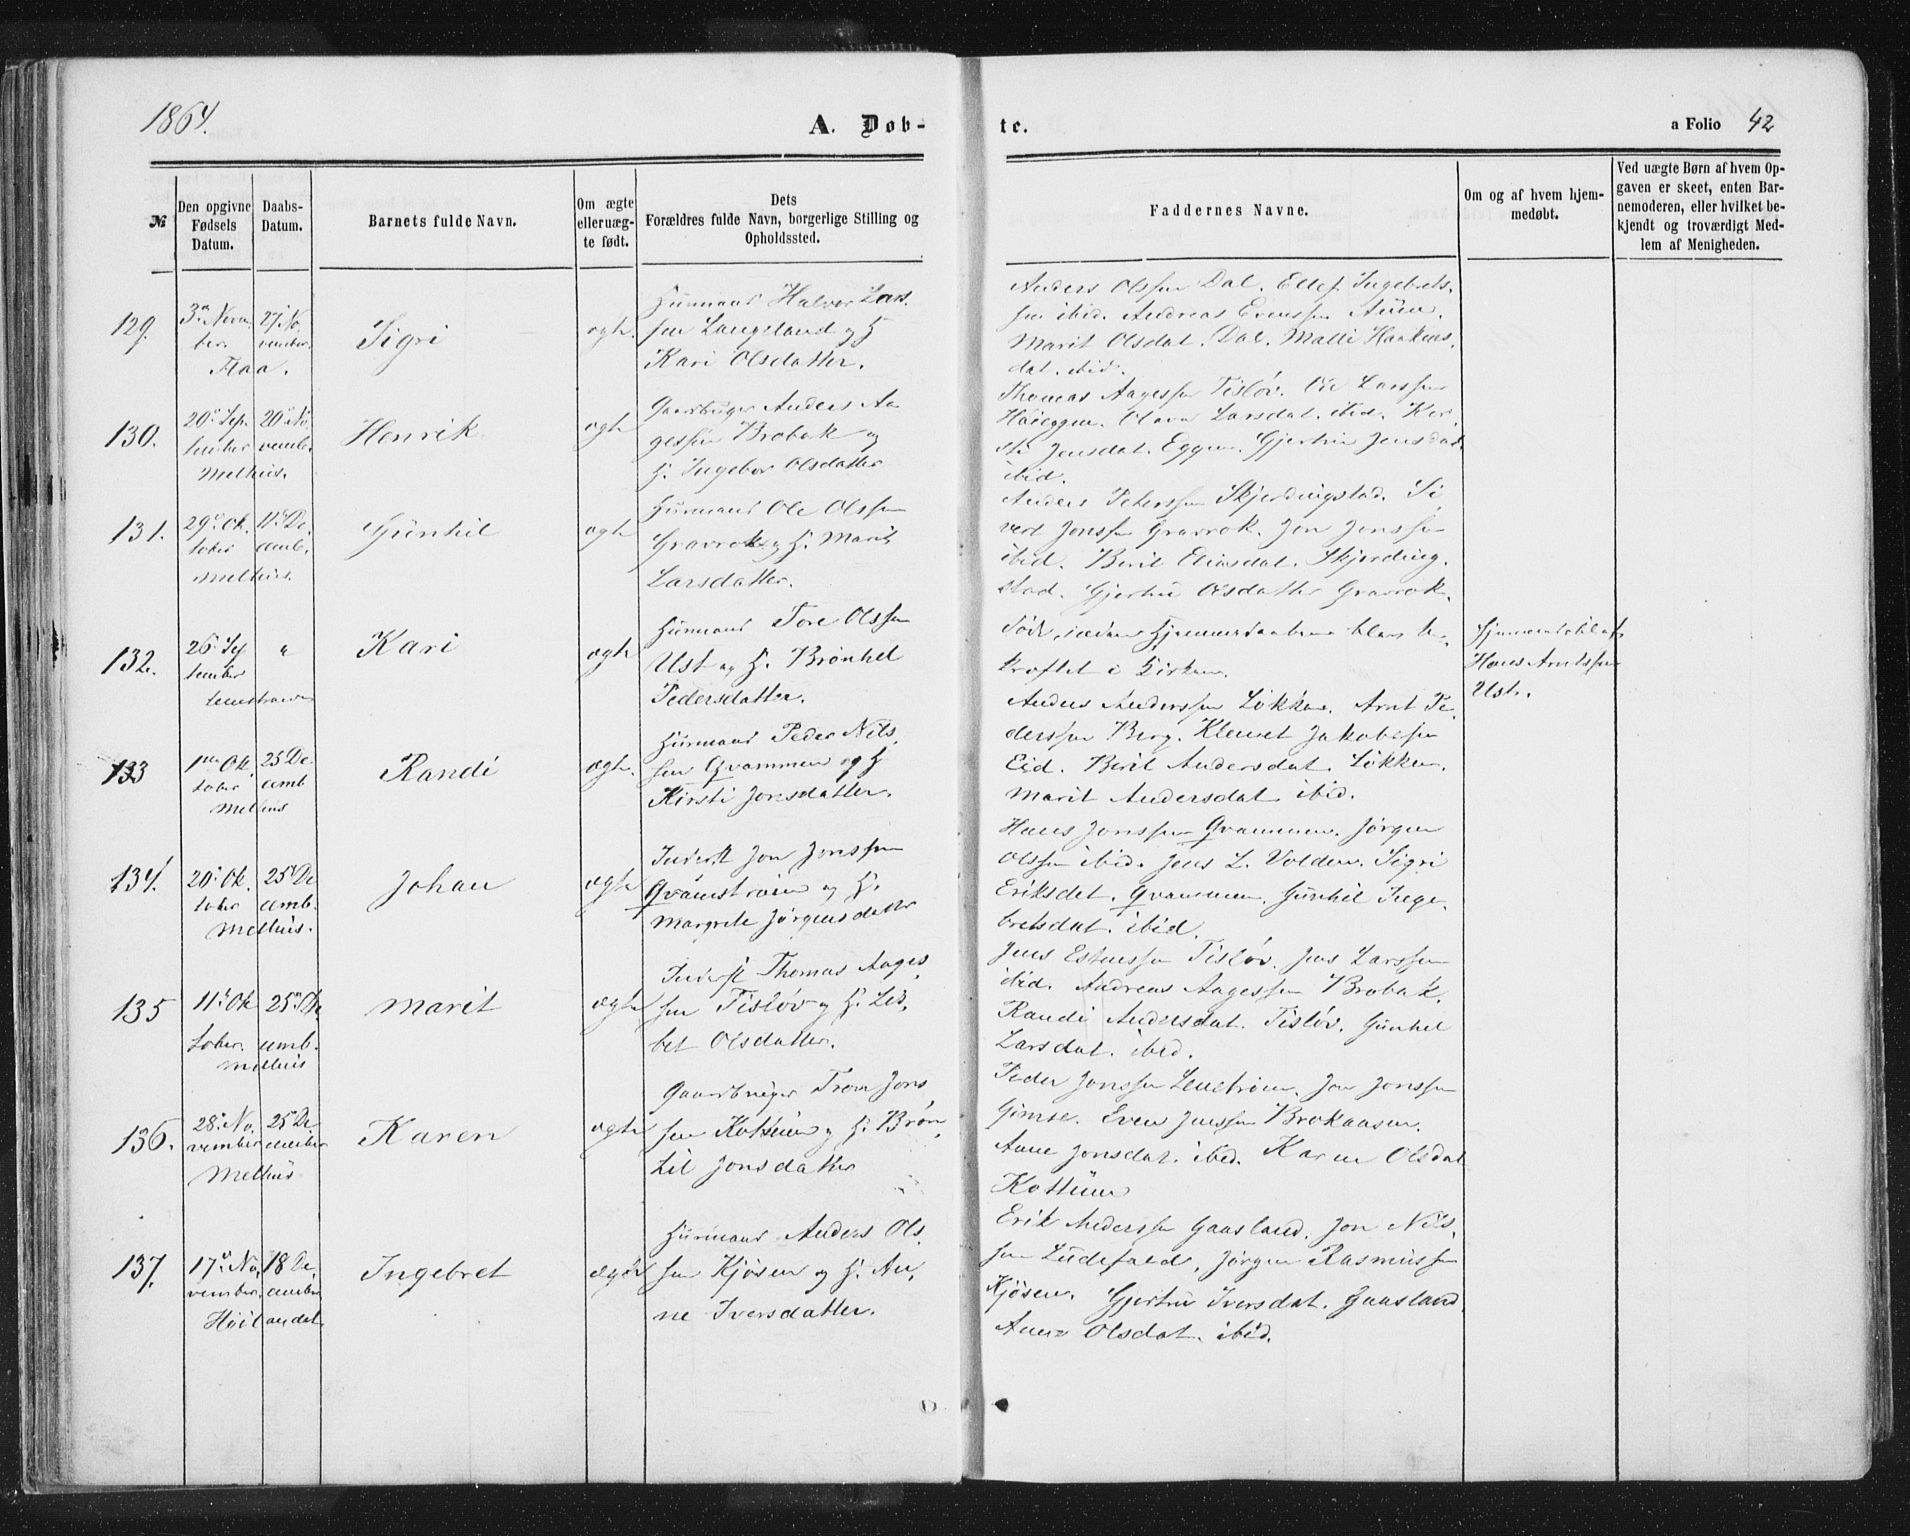 1864.
A. Døb-
te.
a Folio 42
№
Den opgivne Fødsels Datum.
Daabs-Datum.
Barnets fulde Navn.
Om ægte eller uæg-te født.
Dets Forældres fulde Navn, borgerlige Stilling og Opholdssted.
Faddernes Navne.
Om og af hvem hjem-medøbt.
Ved uægte Børn af hvem Op-gaven er skeet, enten Bar-nemoderen, eller hvilket be-kjendt og troværdigt Med-lem af Menigheden.
129.
3die Novem
ber
Flaa.
27 No
vember.
Sigri
ægte.
Huusmand Halvor Lars
sen Langeland og H
Kari Olsdatter.
Anders Olssen Dal. Ellef Ingebrets
sen ibid. Andreas Evenssen
Marit Olsdat. Dal. Malli Haakens
dat. ibid.
130.
20de Sep
tember
Melhus.
20de No
vember
Henrik
ægte
Gaardbruger Anders Aa
gessen Brobak og
H. Ingebor Olsdatter
Thomas Aagessen Tisløv. Ole Larssen
Høieggen. Olava Larsdat. ibid. Ker
sti Jensdat. Eggen. Gjertru Jensdat.
ibid.
131.
29de Ok
tober
Melhus.
11te De
cemb.
Gunhil
ægte
Huusmand Ole Olssen
Gravrok og H. Marit
Larsdatter.
Anders Peterssen Skjerdingstad. Si
vert Jonssen Gravrok. Jon Jonssen
ibid. Beril Eliasdat. Skjerding
stad. Gjertru Olsdatter Gravrok.
132.
26 Sep
tember
Leinstranden
"
Kari
ægte
Huusmand Tore Olssen
Ust og H. Brønhel
Pedersdatter.
Død, inden Hjemmedaaben blev be
kræftet i Kirken.
Hjemmedøbt af
Hans Arntssen
Ust.
133
1ste Ok
tober
Melhus
25 De
cemb
Randi
ægte.
Huusmand Peder Nils
sen Qvammen og H
Kirsti Jonsdatter.
Anders Anderssen Løkken. Arnt Pe
derssen Berg. Klemet Jakobssen
Eid. Beril Andersdat. Løkken.
Marit Andersdat ibid.
134.
20de Ok
tober
Melhus.
25de De
cemb.
Johan
ægte
Inderst Jon Jonssen
Qvamstrøen og H.
Margrete Jørgensdatter
Hans Jonssen Qvammen. Jørgen
Olssen ibid. Jens L. Volden. Sigri
Eriksdat. Qvammen. Gunhil Inge
bretsdat. ibid.
135
11te Ok
tober.
Melhus
25de De
cemb.
Marit
ægte
Inderst Thomas Aages
sen Tisløv og H. Lis
bet Olsdatter.
Jens Estenssen Tisløv. Jens Larssen
ibid. Andreas Aagessen Brobak.
Randi Andersdat. Tisløv. Gunhel
Larsdat. ibid.
136.
28de No
vember
Melhus
25de De
cember
Karen
ægte
Gaardbruger Tron Jons
sen Kottum og H. Brøn
hil Jonsdatter
Peder Jonssen Lenstrøen. Jon Jonssen
Gimse. Even Jenssen Brokaasen.
Anne Jonsdat. ibid. Karen Olsdat
Kottum
137.
17de No
vember.
Høilandet
18 De
cember
Ingebret
ægte
Huusmand Anders Ols
sen Kjøsen og H. An
ne Iversdatter.
Erik Anderssen Gaasland. Jon Nils
sen Ludefald, Jørgen Rasmussen
Kjøsen. Gjertru Iversdat. Gaasland
Anne Olsdat. ibid.